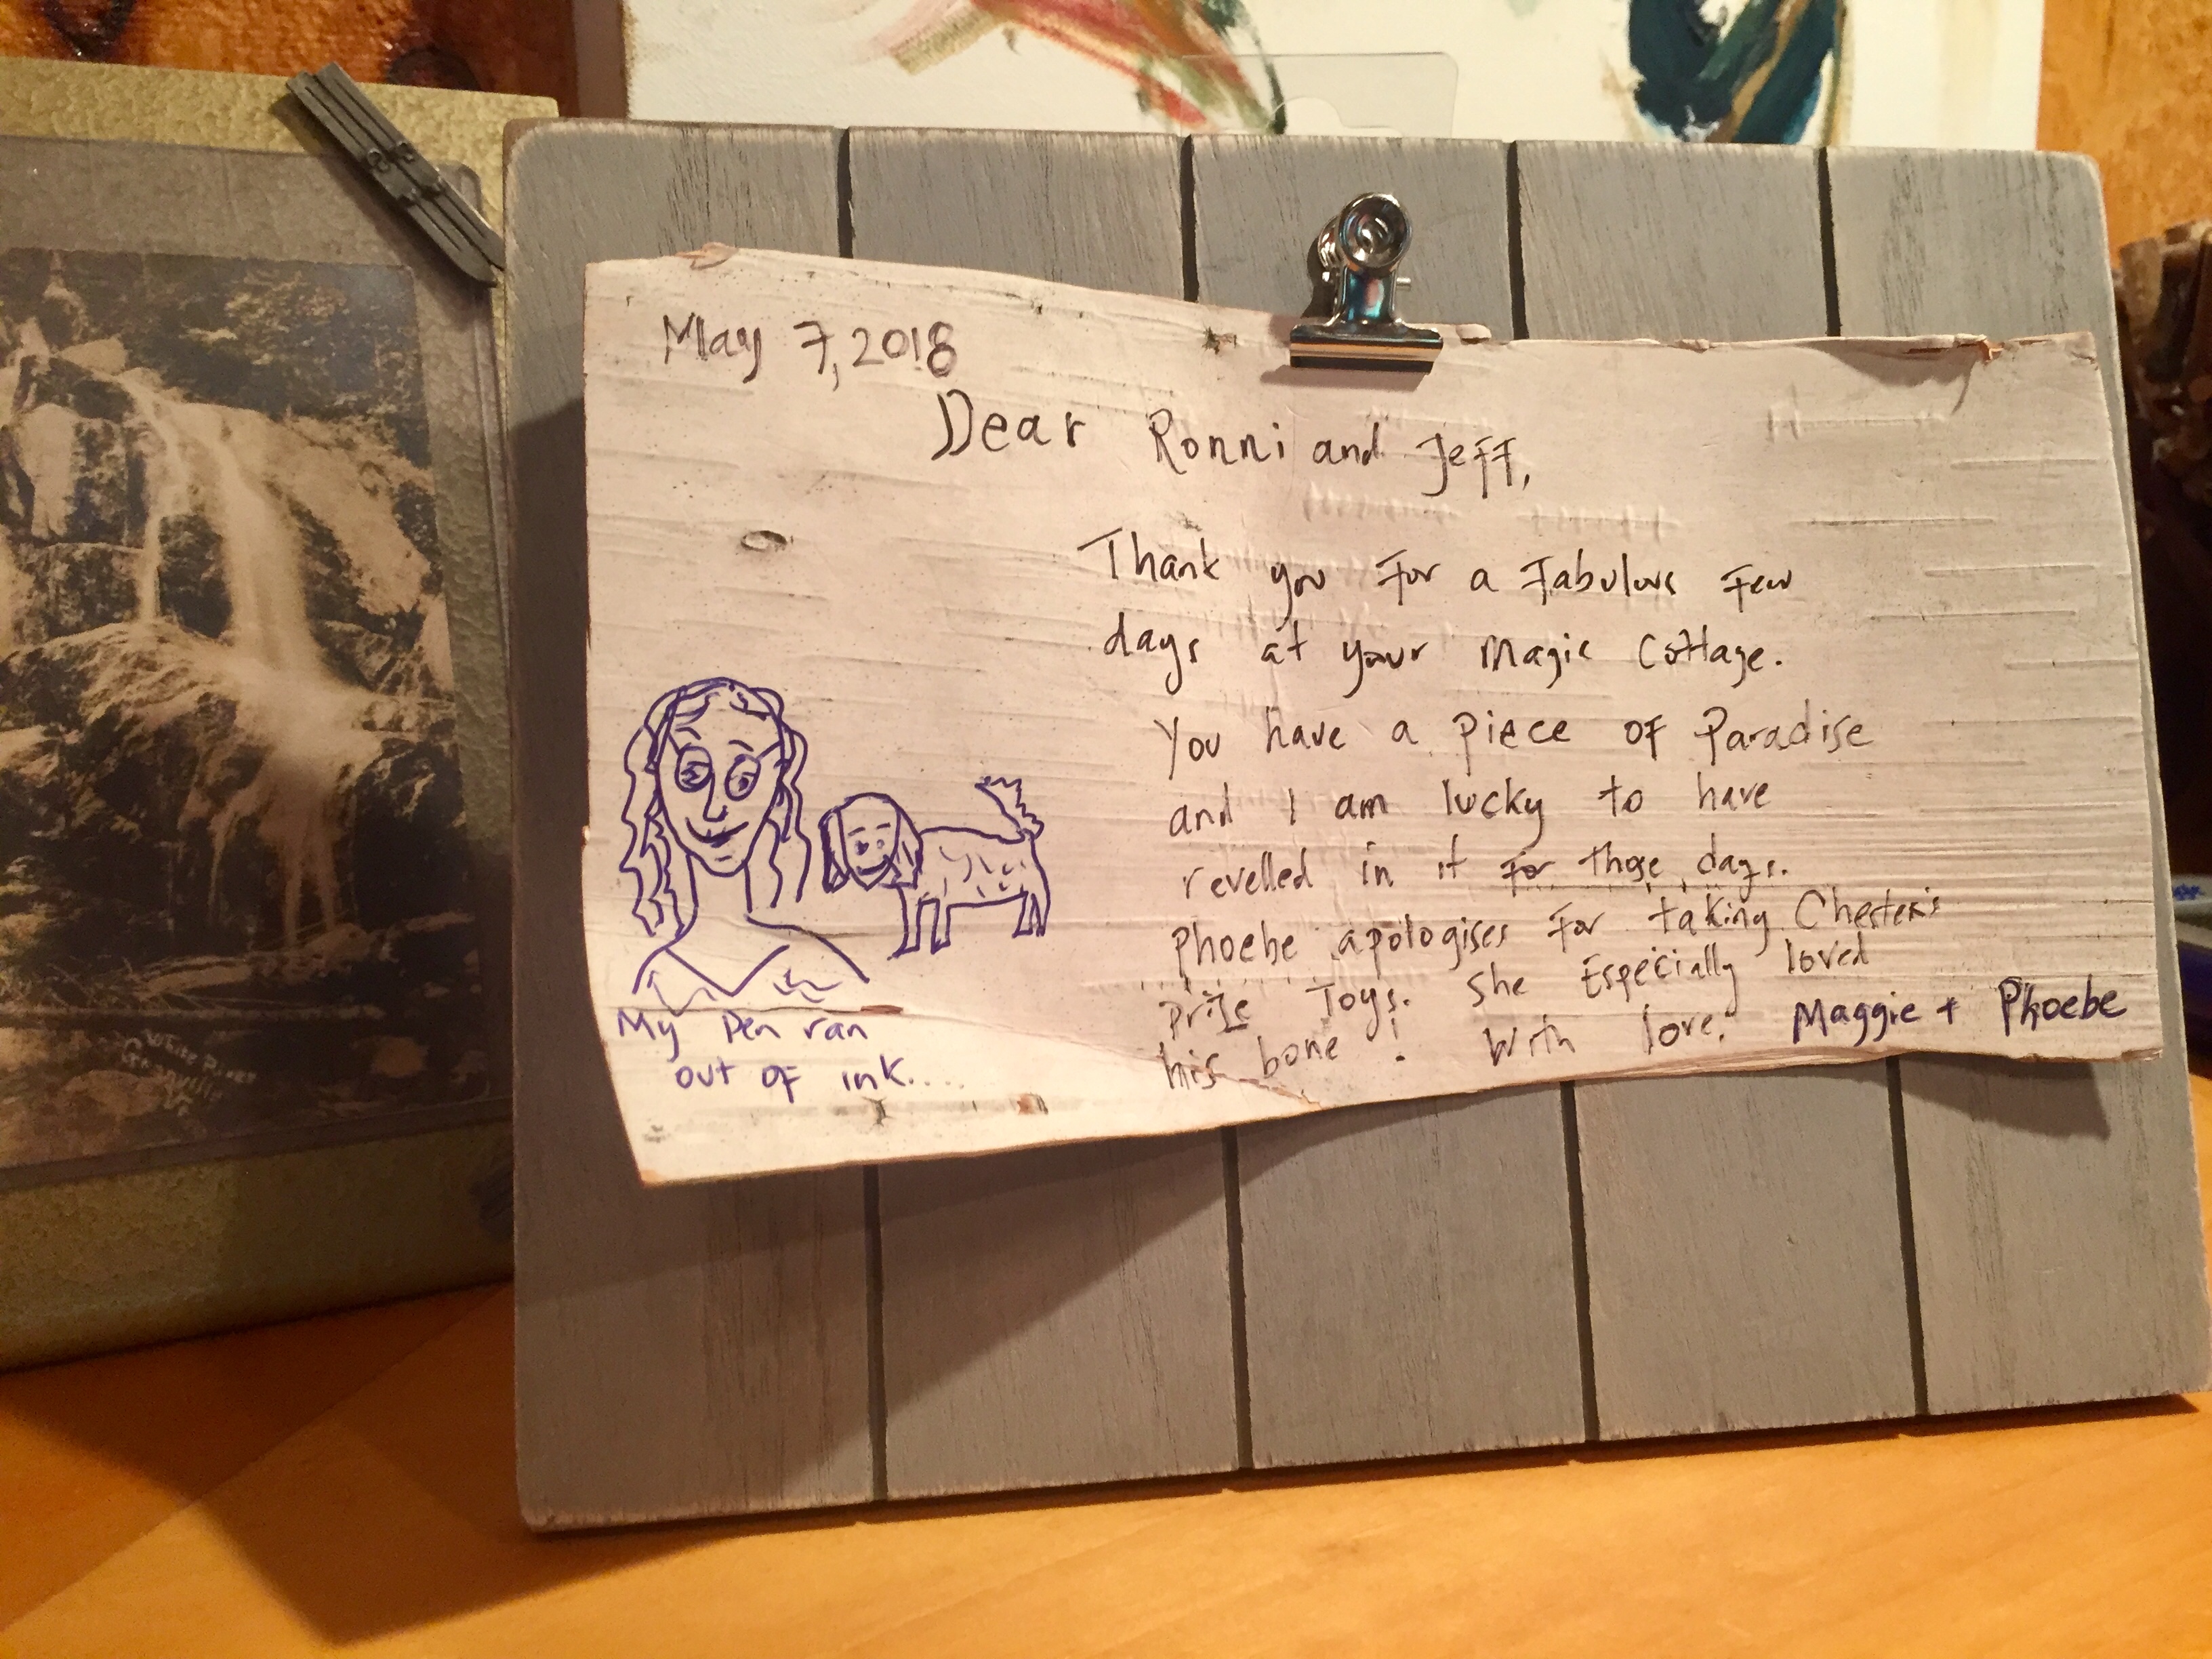 May 7, 2018
Dear Ronni and Jeff,
Thank you for a fabulous few
days at your magic cottage.
You have a piece of Paradise
and I am lucky to have
revelled in it for those days.
Phoebe apologises for taking Chester's
prize Toys. She Especially loved
his bone! With love, Maggie + Phoebe
My Pen ran
out of ink....
White River